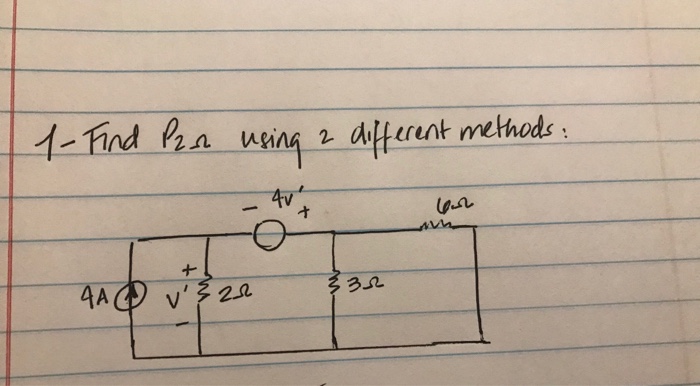 1- Find P2Ω using 2 different methods:
- 4v' +
6Ω
4A
+
v'
-
2Ω
3Ω